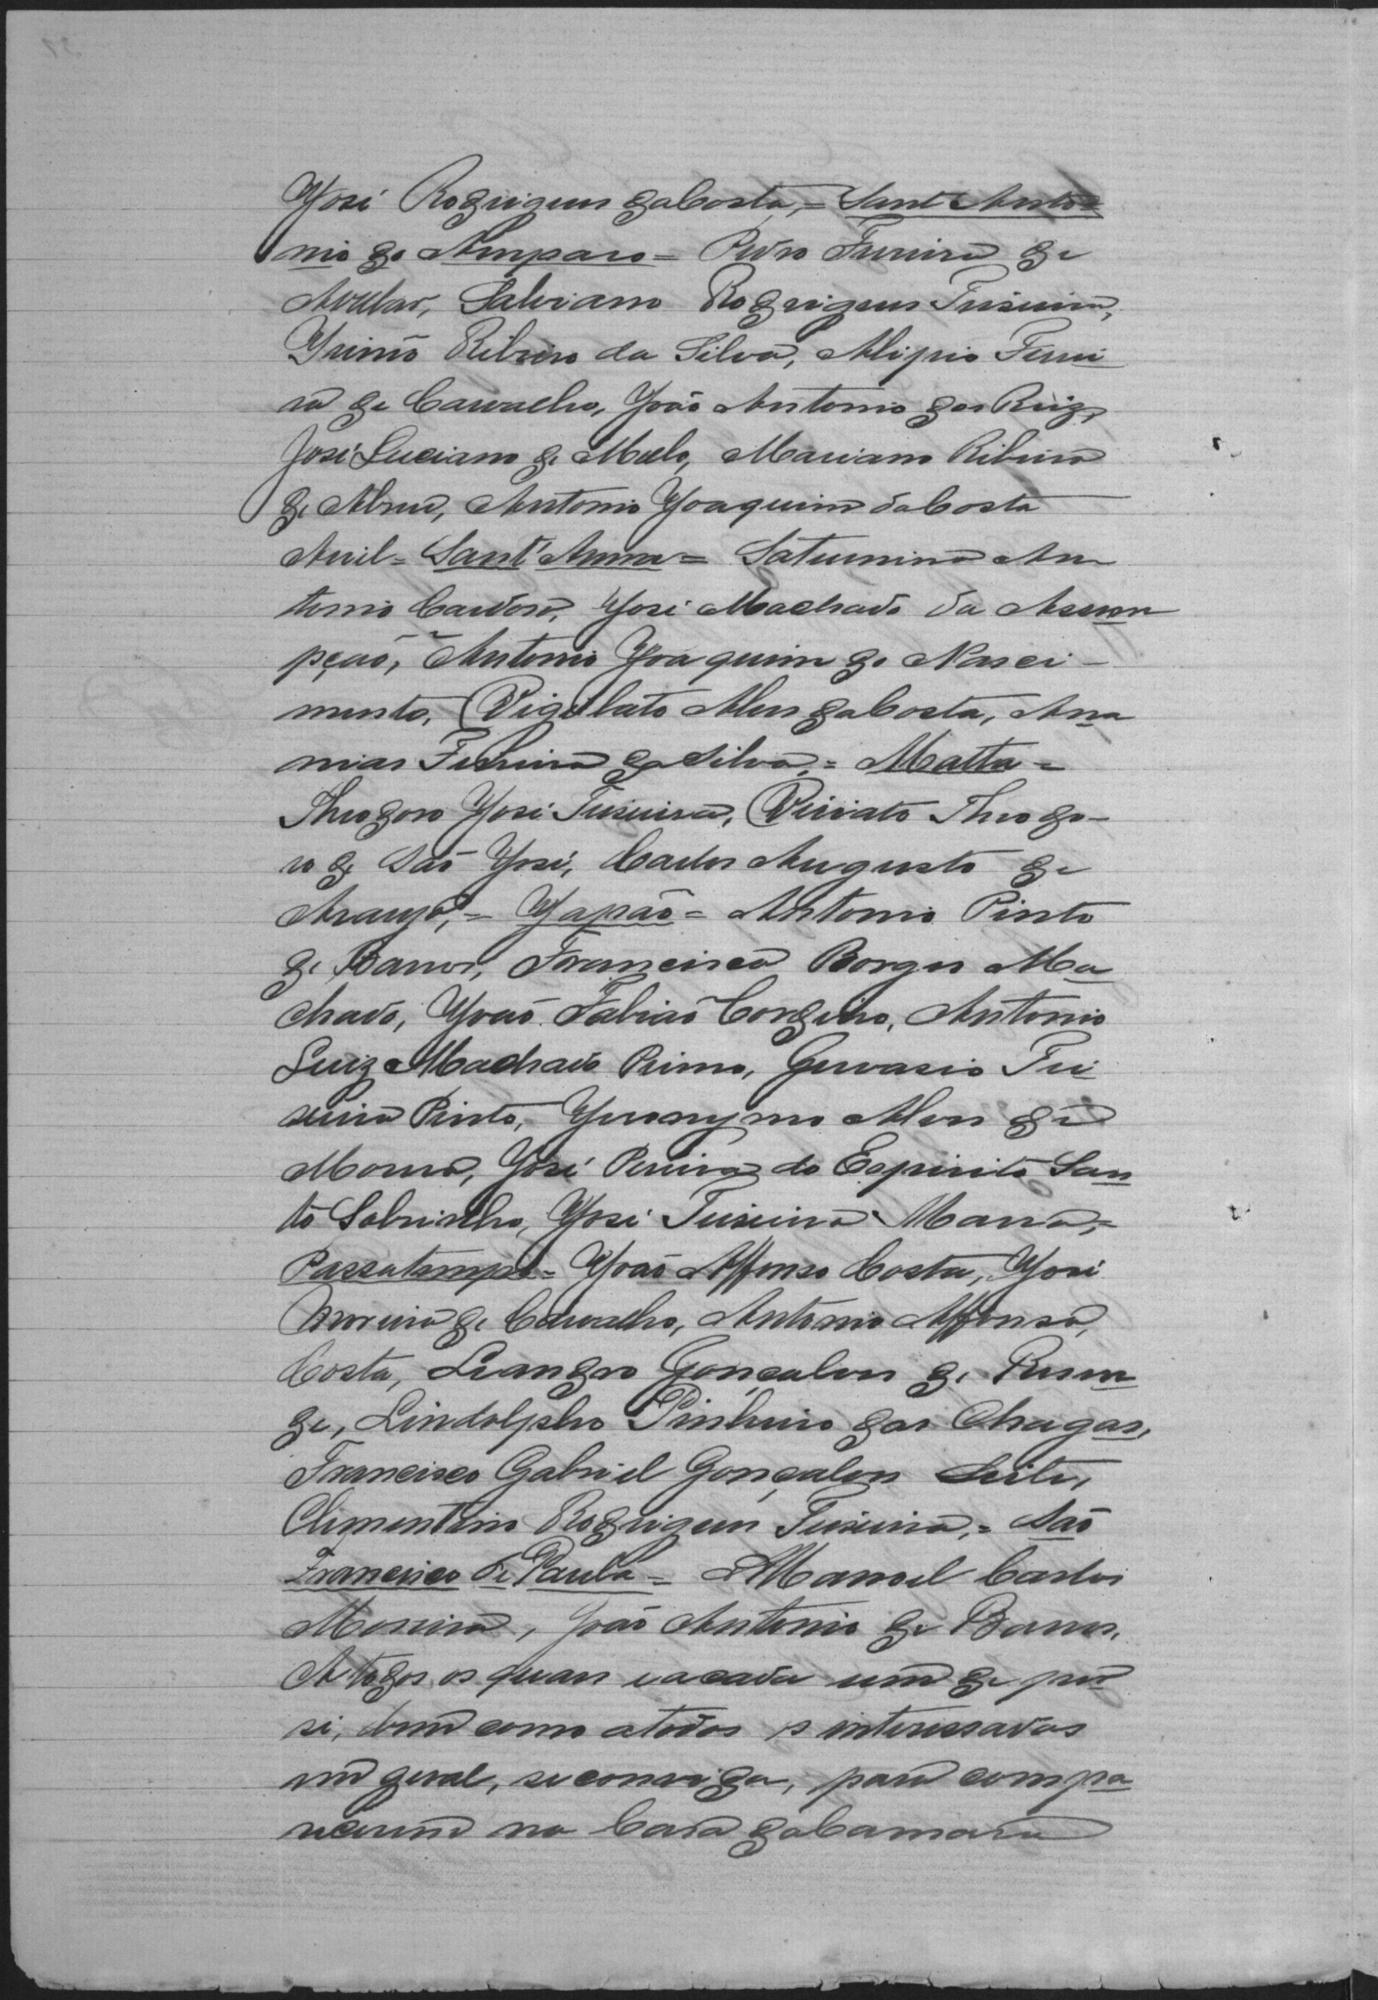 José Rodrigues da Costa, = Sant Anto=
nio do Amparo = Pedro Ferreira de
Avellar, Salviano Rodrigues Teixeira,
Ribeiro da Silva, Alipio Ferrei
ra de Carvalho, João Antonio dos Reiz,
José Luciano de Mello, Mariano Ribeiro
de Abreu, Antonio Joaquim da Costa
Avil = Sant'Anna = Saturnino An
tonio Cardoso, José Machado da Assum
pção, Antonio Joaquim do Nasci-
mento, Vigilato Alves da Costa, Ana
nias Ferreira da Silva, = Matta =
Theodoro José Teixeira, Viriato Theodo-
ro de São José, Carlos Augusto de
Araujo, = Japão = Antonio Pinto
de Barros, Francisco Borges Ma
chado, João Fabião Cordeiro, Antonio
Luiz Machado Primo, Gervasio Tei
xeira Pinto, Jeronymo Alves de
Moura, José Pereira do Espirito San
to Sobrinho, José Teixeira Marra, =
Passatempo = João Affonso Costa, José
Moreira de Carvalho, Antonio Affonso,
Costa, Leandro Gonçalves de Resen
de, Lindolpho Pinheiro das Chagas,
Francisco Gabriel Gonçalves Leite,
Climentino Rodrigues Teixeira, = São
Francisco de Paula = Manoel Carlos
Moreira, João Antonio de Barros.
A todos os quaes e acada um de por
si, bem como atodos os interessados
em geral, se convida, para compa
recerem na Casa da Camara